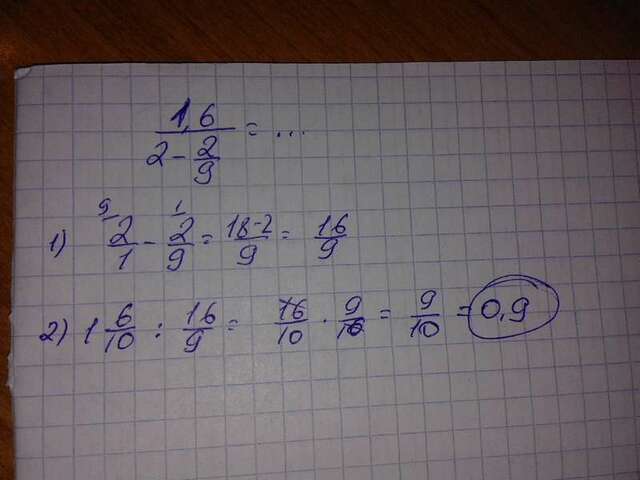 1,6
2 - 2/9 = ...
9 1
1) 2/1 - 2/9 = 18-2/9 = 16/9
2) 1 6/10 : 16/9 = 16/10 · 9/16 = 9/10 = 0,9